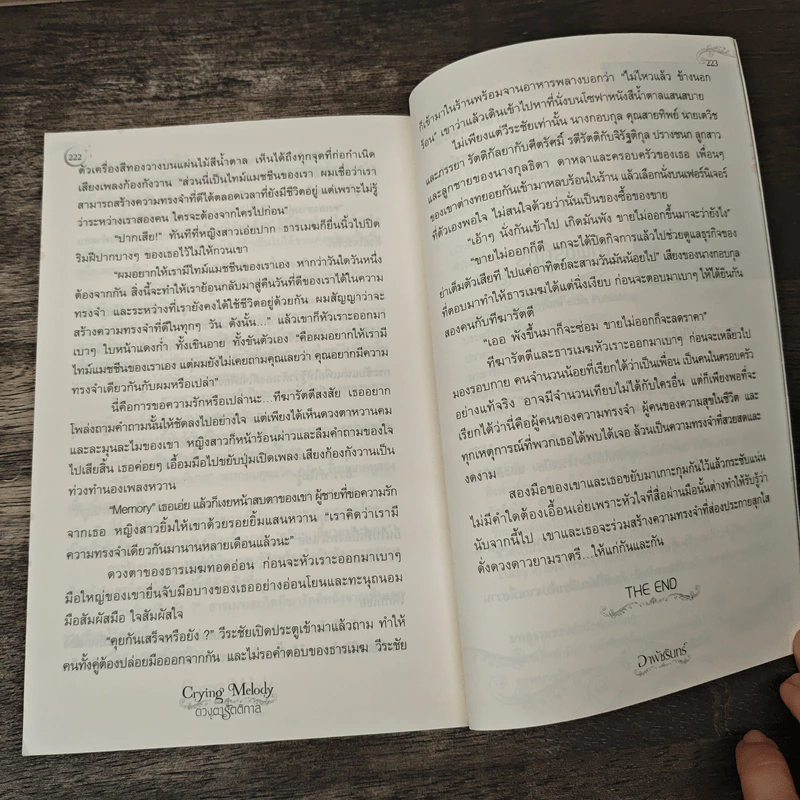 222
ตัวเครื่องสีทองวางบนแผ่นไม้สีน้ำตาล เห็นได้ถึงทุกจุดที่ก่อกำเนิด
เสียงเพลงก้องกังวาน “ส่วนนี่เป็นไทม์แมชชีนของเรา ผมเชื่อว่าเรา
สามารถสร้างความทรงจำที่ดีได้ตลอดเวลาที่ยังมีชีวิตอยู่ แต่เพราะไม่รู้
ว่าระหว่างเราสองคน ใครจะต้องจากใครไปก่อน”
“ปากเสีย!” ทันทีที่หญิงสาวเอ่ยปาก ธารเมฆก็ยื่นนิ้วไปปิด
ริมฝีปากบางๆ ของเธอไว้ไม่ให้กวนเขา
“ผมอยากให้เรามีไทม์แมชชีนของเราเอง หากว่าวันใดวันหนึ่ง
ต้องจากกัน สิ่งนี้จะทำให้เราย้อนกลับมาสู่คืนวันที่ดีของเราได้ในความ
ทรงจำ และระหว่างที่เรายังคงได้ใช้ชีวิตอยู่ด้วยกัน ผมสัญญาว่าจะ
สร้างความทรงจำที่ดีในทุกๆ วัน ดังนั้น...” แล้วเขาก็หัวเราะออกมา
เบาๆ ใบหน้าแดงก่ำ ทั้งเขินอาย ทั้งขันตัวเอง “คือผมอยากให้เรามี
ไทม์แมชชีนของเราเอง แต่ผมยังไม่เคยถามคุณเลยว่า คุณอยากมีความ
ทรงจำเดียวกันกับผมหรือเปล่า”
นี่คือการขอความรักหรือเปล่านะ... ทีฆารัตตีสงสัย เธออยาก
โพล่งถามคำถามนั้นให้ชัดลงไปอย่างใจ แต่เพียงได้เห็นดวงตาหวานคม
และละมุนละไมของเขา หญิงสาวก็หน้าร้อนผ่าวและลืมคำถามของใจ
ไปเสียสิ้น เธอค่อยๆ เอื้อมมือไปขยับปุ่มเปิดเพลง เสียงก้องกังวานเป็น
ท่วงทำนองเพลงหวาน
“Memory” เธอเอ่ย แล้วก็เงยหน้าสบตาของเขา ผู้ชายที่ขอความรัก
จากเธอ หญิงสาวยิ้มให้เขาด้วยรอยยิ้มแสนหวาน “เราคิดว่าเรามี
ความทรงจำเดียวกันมานานหลายเดือนแล้วนะ”
ดวงตาของธารเมฆทอดอ่อน ก่อนจะหัวเราะออกมาเบาๆ
มือใหญ่ของเขายื่นจับมือบางของเธออย่างอ่อนโยนและทะนุถนอม
มือสัมผัสมือ ใจสัมผัสใจ
“คุยกันเสร็จหรือยัง ?” วีระชัยเปิดประตูเข้ามาแล้วถาม ทำให้
คนทั้งคู่ต้องปล่อยมือออกจากกัน และไม่รอคำตอบของธารเมฆ วีระชัย
Crying Melody
ดวงดารัตติกาล
223
ก็เข้ามาในร้านพร้อมจานอาหารพลางบอกว่า “ไม่ไหวแล้ว ข้างนอก
ร้อน” เขาว่าแล้วเดินเข้าไปหาที่นั่งบนโซฟาหนังสีน้ำตาลแสนสบาย
ไม่เพียงแต่วีระชัยเท่านั้น นางกอบกุล คุณสายทิพย์ นายเตวิช
และภรรยา รัตติกัลยากับศีตรัศมิ์ รตีรัตติกับจิรัฐติกุล ปรางชนก ลูกสาว
และลูกชายของนางกุลธิดา ดาหลาและครอบครัวของเธอ เพื่อนๆ
ของเขาต่างทยอยกันเข้ามาหลบร้อนในร้าน แล้วเลือกนั่งบนเฟอร์นิเจอร์
ที่ตัวเองพอใจ ไม่สนใจด้วยว่านั่นเป็นของซื้อของขาย
“เอ้าๆ นั่งกันเข้าไป เกิดมันพัง ขายไม่ออกขึ้นมาจะว่ายังไง”
“ขายไม่ออกก็ดี แกจะได้ปิดกิจการแล้วไปช่วยดูแลธุรกิจของ
ย่าเต็มตัวเสียที ไปแค่อาทิตย์ละสามวันมันน้อยไป” เสียงของนางกอบกุล
ที่ตอบมาทำให้ธารเมฆได้แต่นิ่งเงียบ ก่อนจะตอบมาเบาๆ ให้ได้ยินกัน
สองคนกับทีฆารัตตี
“เออ พังขึ้นมาก็จะซ่อม ขายไม่ออกก็จะลดราคา”
ทีฆารัตตีและธารเมฆหัวเราะออกมาเบาๆ ก่อนจะเหลียวไป
มองรอบกาย คนจำนวนน้อยที่เรียกได้ว่าเป็นเพื่อน เป็นคนในครอบครัว
อย่างแท้จริง อาจมีจำนวนเทียบไม่ได้กับใครอื่น แต่ก็เพียงพอที่จะ
เรียกได้ว่านี่คือผู้คนของความทรงจำ ผู้คนของความสุขในชีวิต และ
ทุกเหตุการณ์ที่พวกเธอได้พบได้เจอ ล้วนเป็นความทรงจำที่สวยสดและ
งดงาม
สองมือของเขาและเธอขยับมาเกาะกุมกันไว้แล้วกระชับแน่น
ไม่มีคำใดต้องเอื้อนเอ่ยเพราะหัวใจที่สื่อผ่านมือนั้นต่างทำให้รับรู้ว่า
นับจากนี้ไป เขาและเธอจะร่วมสร้างความทรงจำที่ส่องประกายสุกใส
ดั่งดวงดาวยามราตรี...ให้แก่กันและกัน
THE END
อาพัชรินทร์